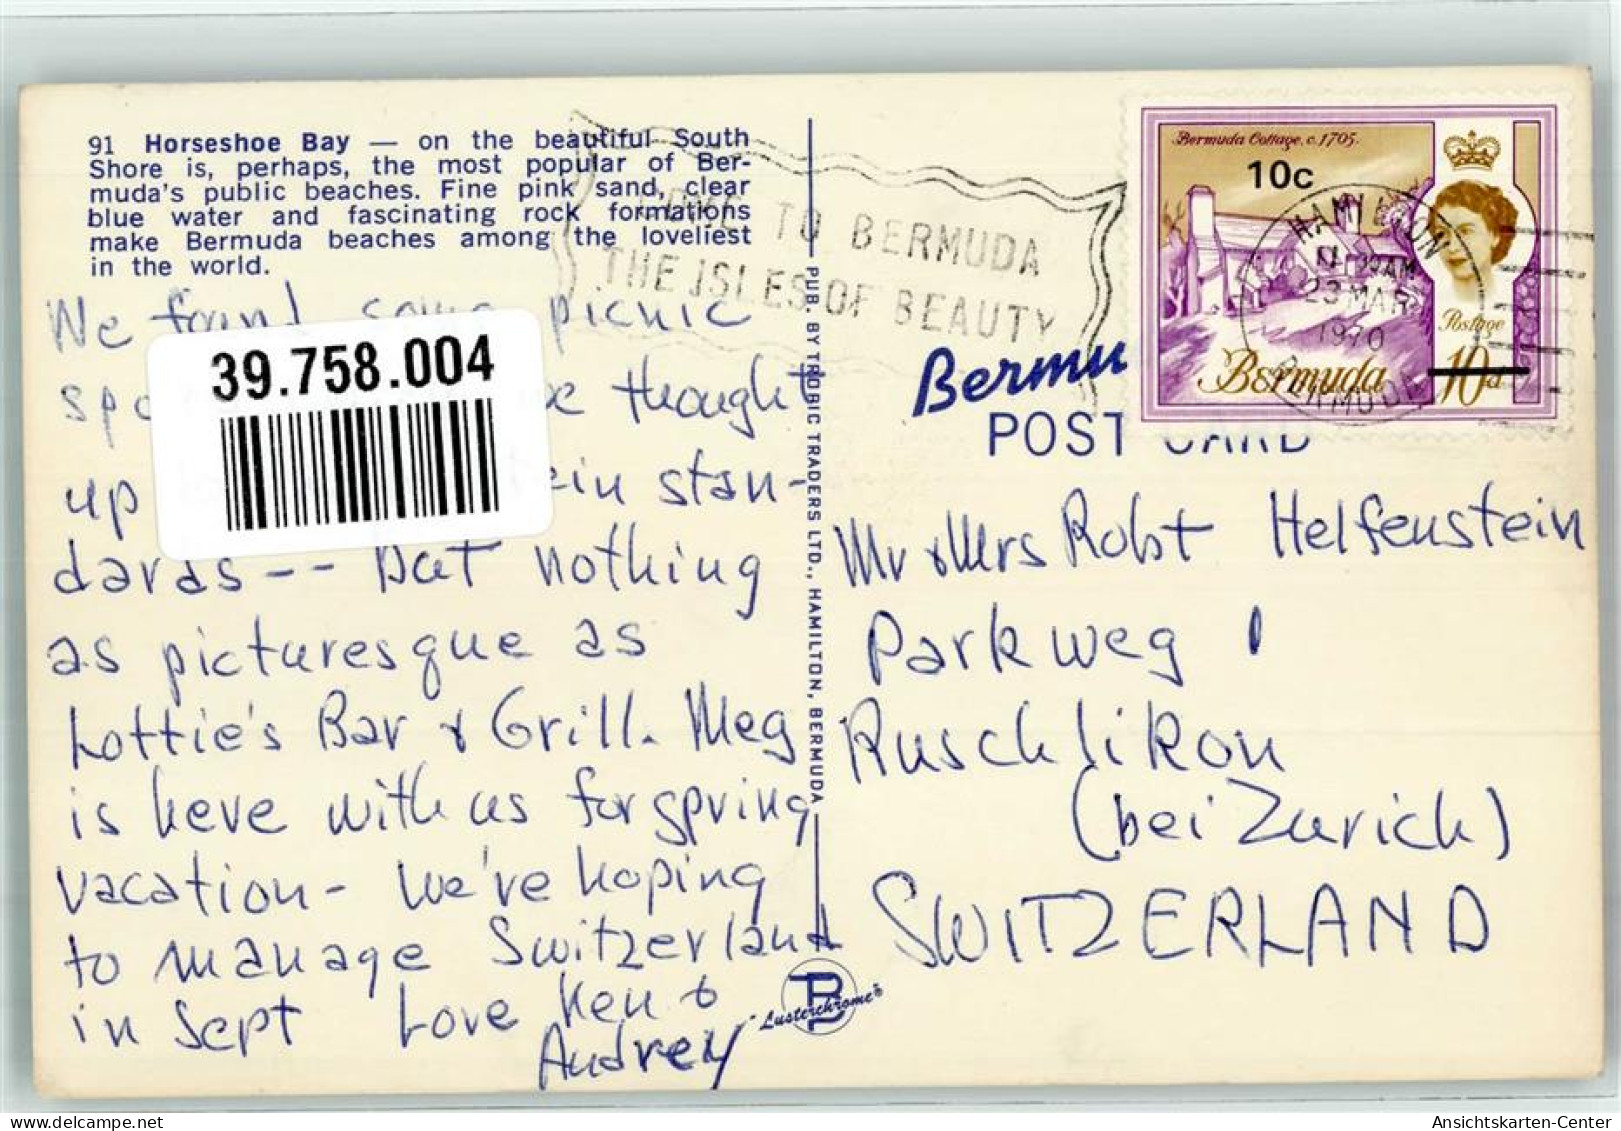 91 Horseshoe Bay — on the beautiful South
Shore is, perhaps, the most popular of Ber-
muda's public beaches. Fine pink sand, clear
blue water and fascinating rock formations
make Bermuda beaches among the loveliest
in the world.
We found some picnic
thought
up stan-
dards -- but nothing
as picturesque as
Lottie's Bar & Grill. Meg
is here with us for spring
vacation - We're hoping
to manage Switzerland
in Sept Love Ken &
Audrey
39.758.004
PUB. BY TROBIC TRADERS LTD., HAMILTON, BERMUDA
Lusterchrome's
TO BERMUDA
THE ISLES OF BEAUTY
Bermuda Cottage, c.1705.
10c
Postage
Bermuda 10d
HAMILTON
AM
23 MAR
1970
BERMUDA
Bermu
POST CARD
Mr & Mrs Robt Helfenstein
Parkweg 1
Ruschlikon
(bei Zurich)
SWITZERLAND
Ansichtskarten-Center